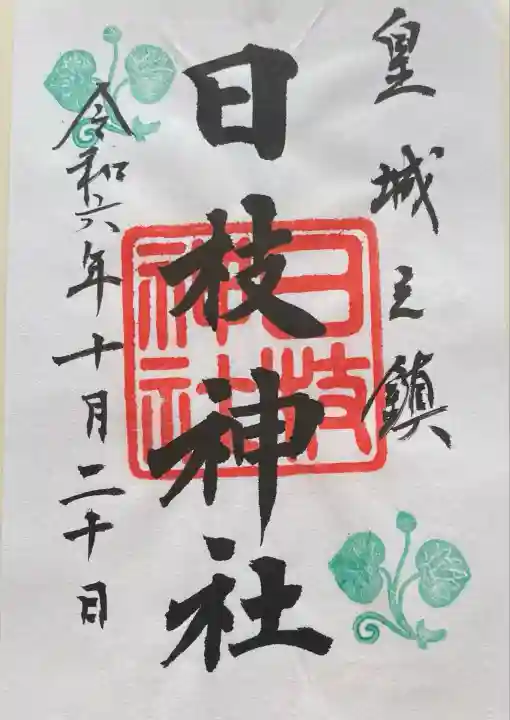 皇城之鎮
日枝神社
日枝
神社
令和六年十月二十日